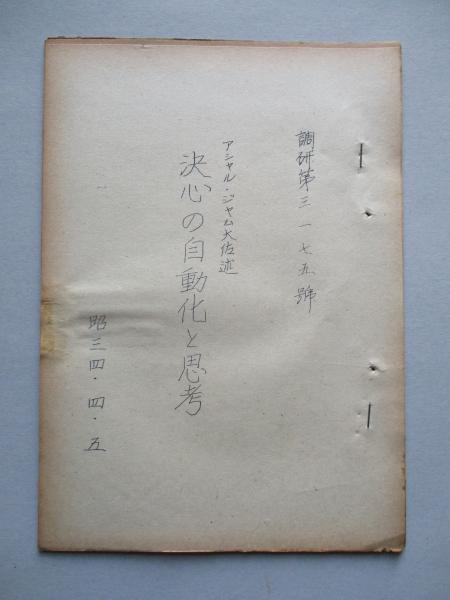 調研第三一七五號
アシャル・ジャム大佐述
決心の自動化と思考
昭三四・四・五